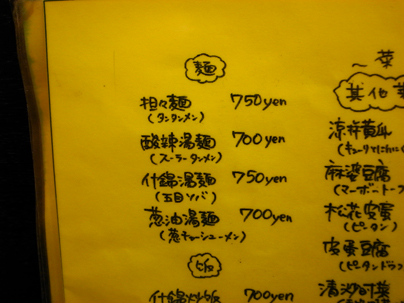 麺
担々麺 750yen
(タンタンメン)
酸辣湯麺 700yen
(スーラータンメン)
什錦湯麺 750yen
(五目ソバ)
葱油湯麺 700yen
(葱チャーシューメン)
飯
什錦炒飯 700yen
~ 菜
其他
涼拌黄瓜
麻婆豆腐
(マーボートーフ
松花皮蛋
(ピータン)
皮蛋豆腐
(ピータンドウフ